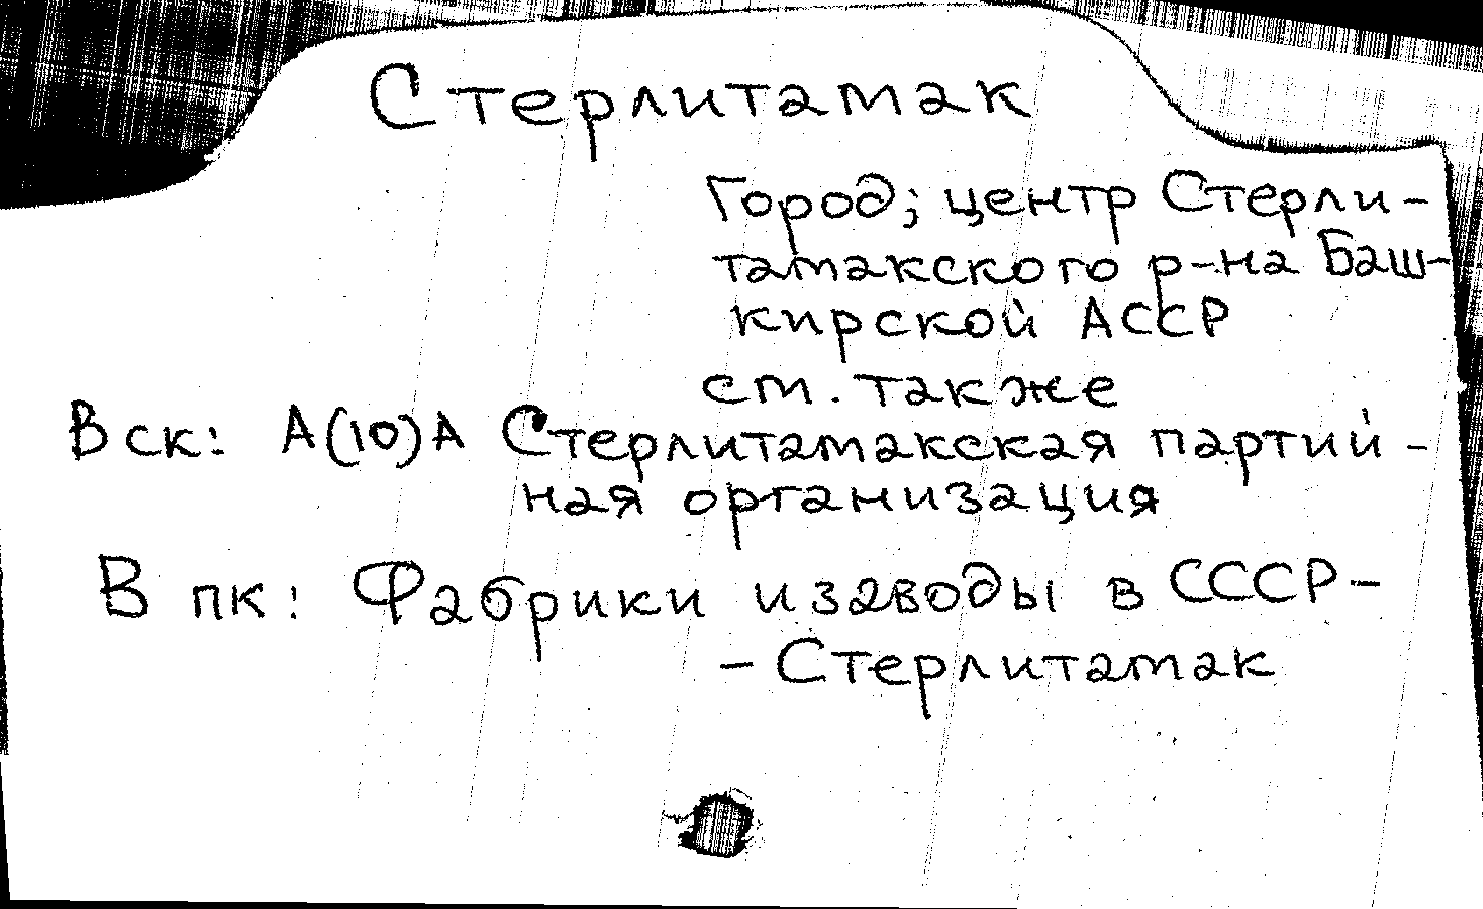 Стерлитамак
Город; центр Стерли-
тамакского р-на Баш-
кирской АССР
см. также
В ск: А(10)А Стерлитамакская партий-
ная организация
В пк: Фабрики и заводы в СССР-
-Стерлитамак